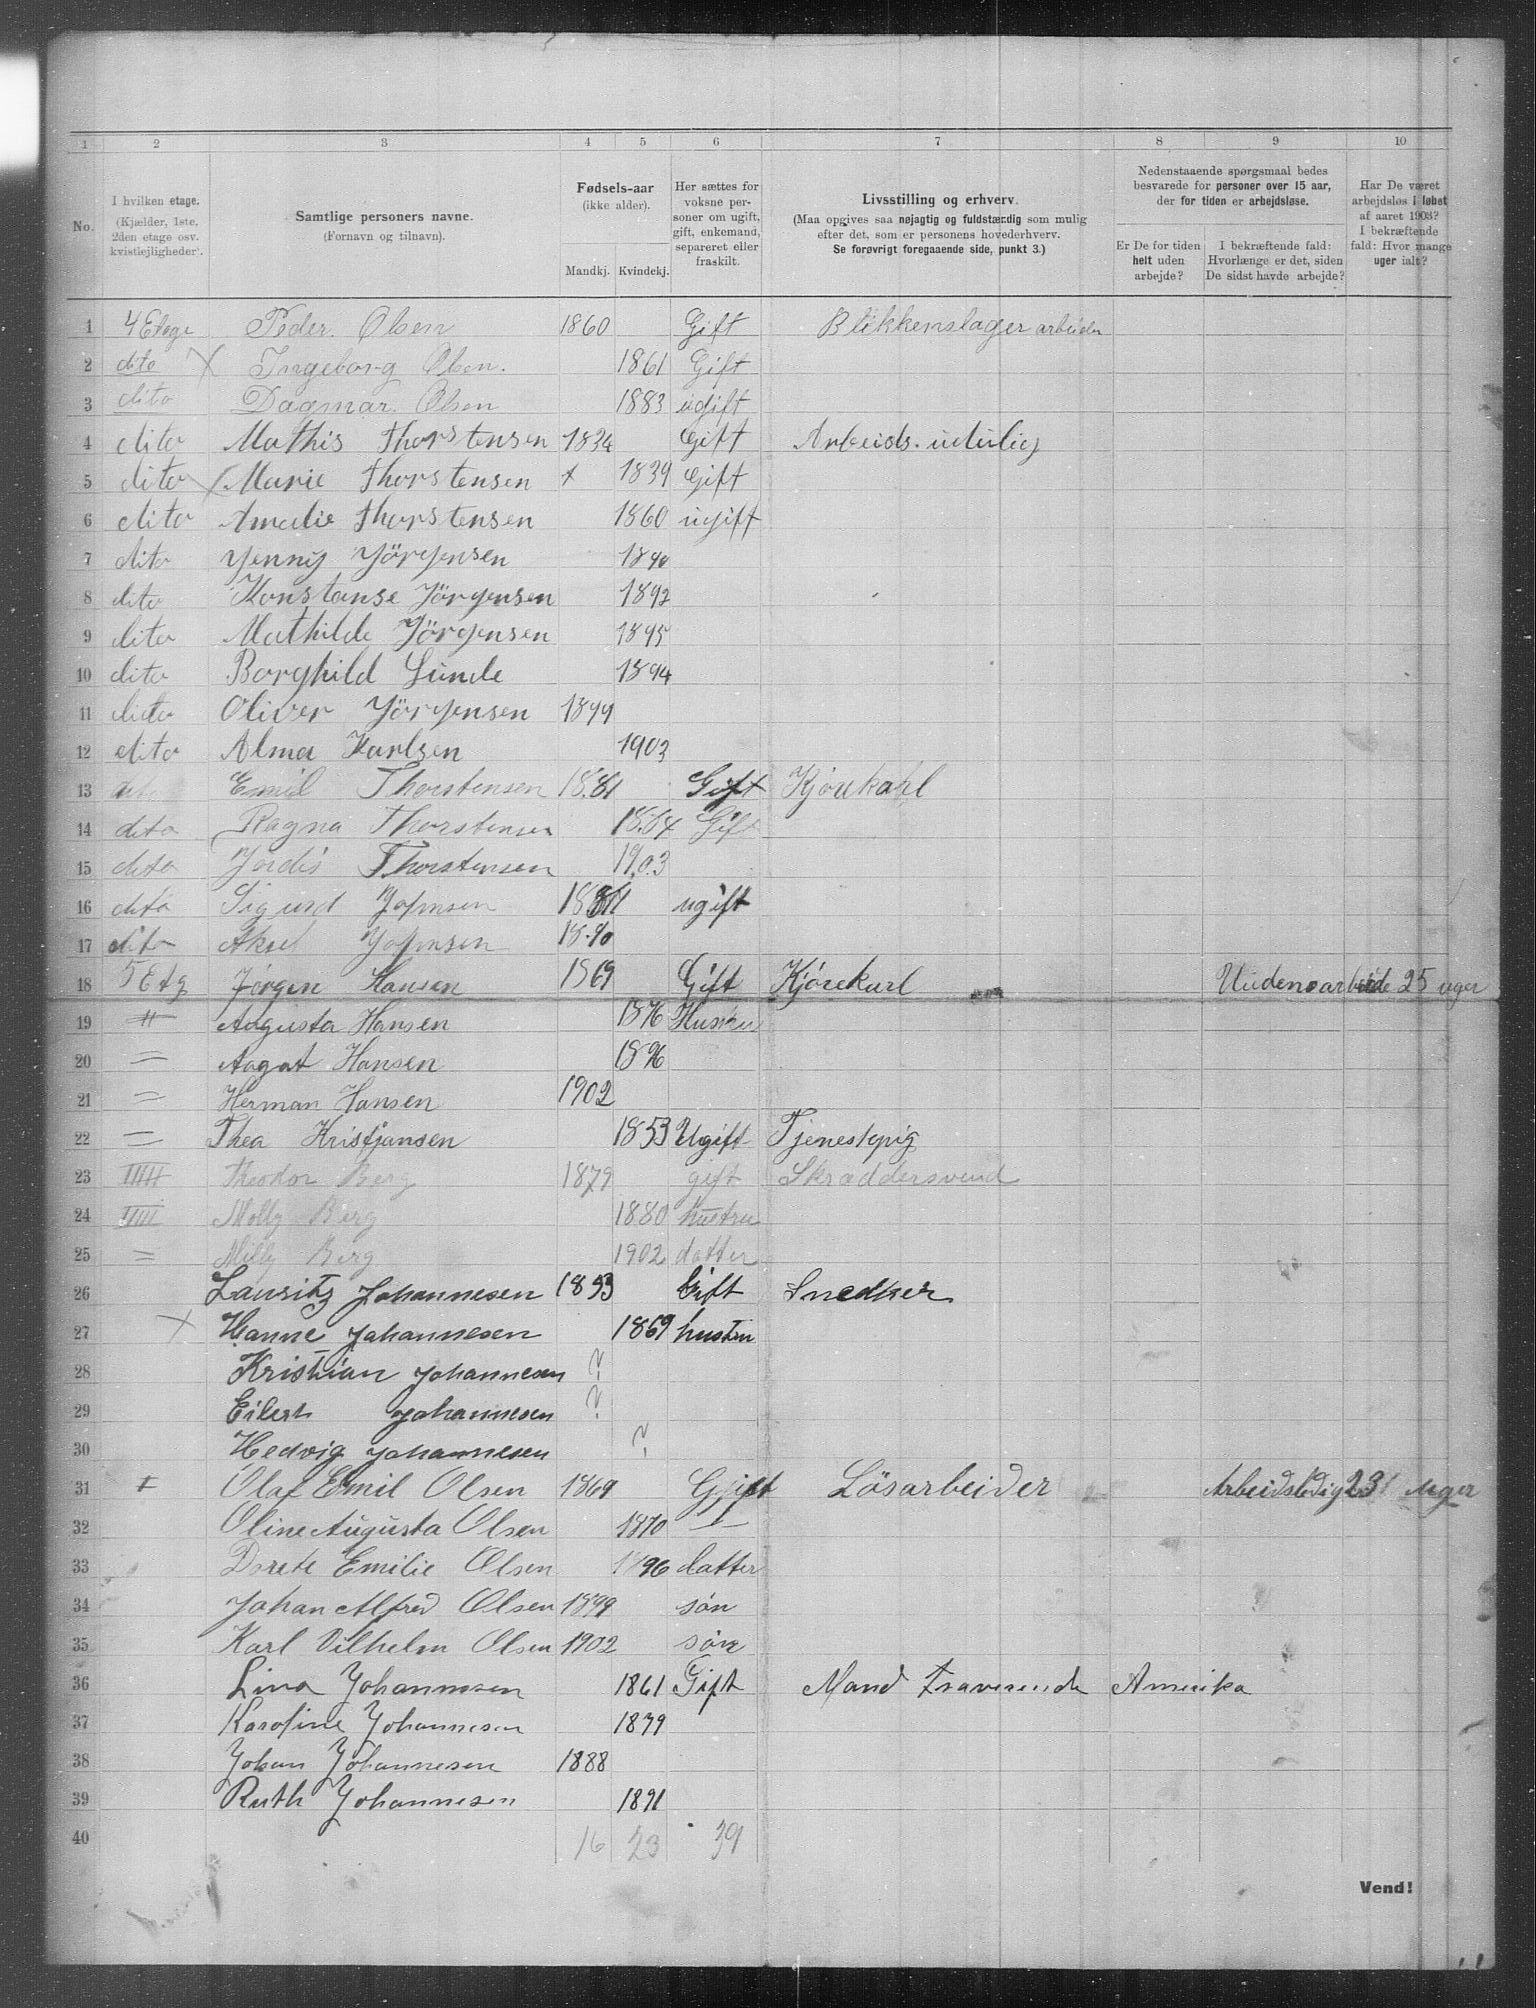 1 2 3 4 5 6 7 8 9 10
No.
I hvilken etage. (Kjælder, 1ste, 2den etage osv. kvistleiligheder).
Samtlige personers navne. (Fornavn og tilnavn).
Fødsels-aar (ikke alder). Mandkj. Kvindekj.
Her sættes for voksne personer om ugift, gift, enkemand, separeret eller fraskilt.
Livsstilling og erhverv. (Maa opgives saa nøjagtig og fuldstændig som mulig efter det, som er personens hovederhverv. Se forøvrigt foregaaende side, punkt 3.)
Nedenstaaende spørgsmaal bedes besvarede for personer over 15 aar, der for tiden er arbejdsløse.
Er De for tiden helt uden arbejde?
I bekræftende fald: Hvorlænge er det, siden De sidst havde arbejde?
Har De været arbejdsløs i løbet af aaret 1903? I bekræftende fald: Hvor mange uger ialt?
1 4 Etage Peder Olsen 1860 Gift Blikkenslager arbeider
2 dito X Ingeborg Olsen. 1861 Gift
3 dito Dagmar. Olsen 1883 ugift
4 dito Mathis Thorstensen 1834 Gift Arbeids. udulig
5 dito X Marie Thorstensen x 1839 Gift
6 dito Amalie Thorstensen 1860 ugift
7 dito Yenny Jörgensen 1890
8 dito Konstanse Jörgensen 1892
9 dito Mathilde Jörgensen 1895
10 dito Borghild Lunde 1894
11 dito Oliver Jörgensen 1899
12 dito Alma Karlsen 1903
13 dito Emil Thorstensen 1881 Gift Kjörekarl
14 dito Ragna Thorstensen 1884 Gift
15 dito Jordis Thorstensen 1903
16 dito Sigurd Johnsen ugift
17 dito Aksel Johnsen 1890
18 5 Etg Jörgen Hansen 1869 Gift Kjörekarl Uudenarbeide 25 uger
19 " Augusta Hansen 1876 Hustru
20 = Aagot Hansen 1896
21 = Herman Hansen 1902
22 = Thea Kristjansen 1853 Ugift Tjenestepig
23 Theodor Berg 1879 gift Skräddersvend
24 Molly Berg 1880 hustru
25 = Milly Berg 1902 datter
26 Lauritz Johannesen 1853 Gift Snedker
27 X Hanne Johannesen 1869 hustru
28 Kristian Johannesen ?
29 Eilert Johannesen ?
30 Hedvig Johannesen ?
31 Olaf Emil Olsen 1869 Gift Lösarbeider Arbeidsledig 23 uger
32 Oline Augusta Olsen 1870 —"—
33 Dorete Emilie Olsen 1896 datter
34 Johan Alfred Olsen 1899 sön
35 Karl Vilhelm Olsen 1902 sön
36 Lina Johannesen 1861 Gift Mand fraværende Amerika
37 Karoline Johannesen 1879
38 Johan Johannesen 1888
39 Ruth Johannesen 1891
40 16 23 39
Vend!